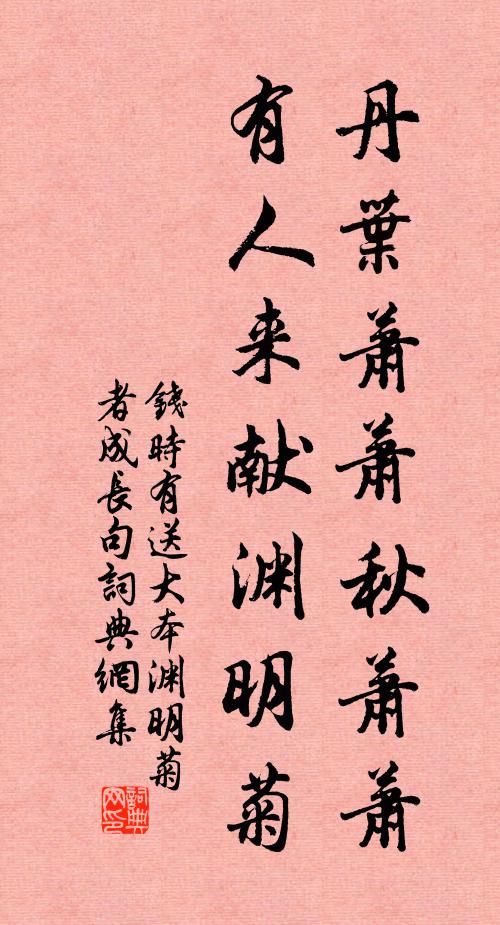 丹葉蕭蕭秋蕭蕭
有人来献渊明菊
錢時有送大本渊明菊
者成長句詞典網集
詞典网印